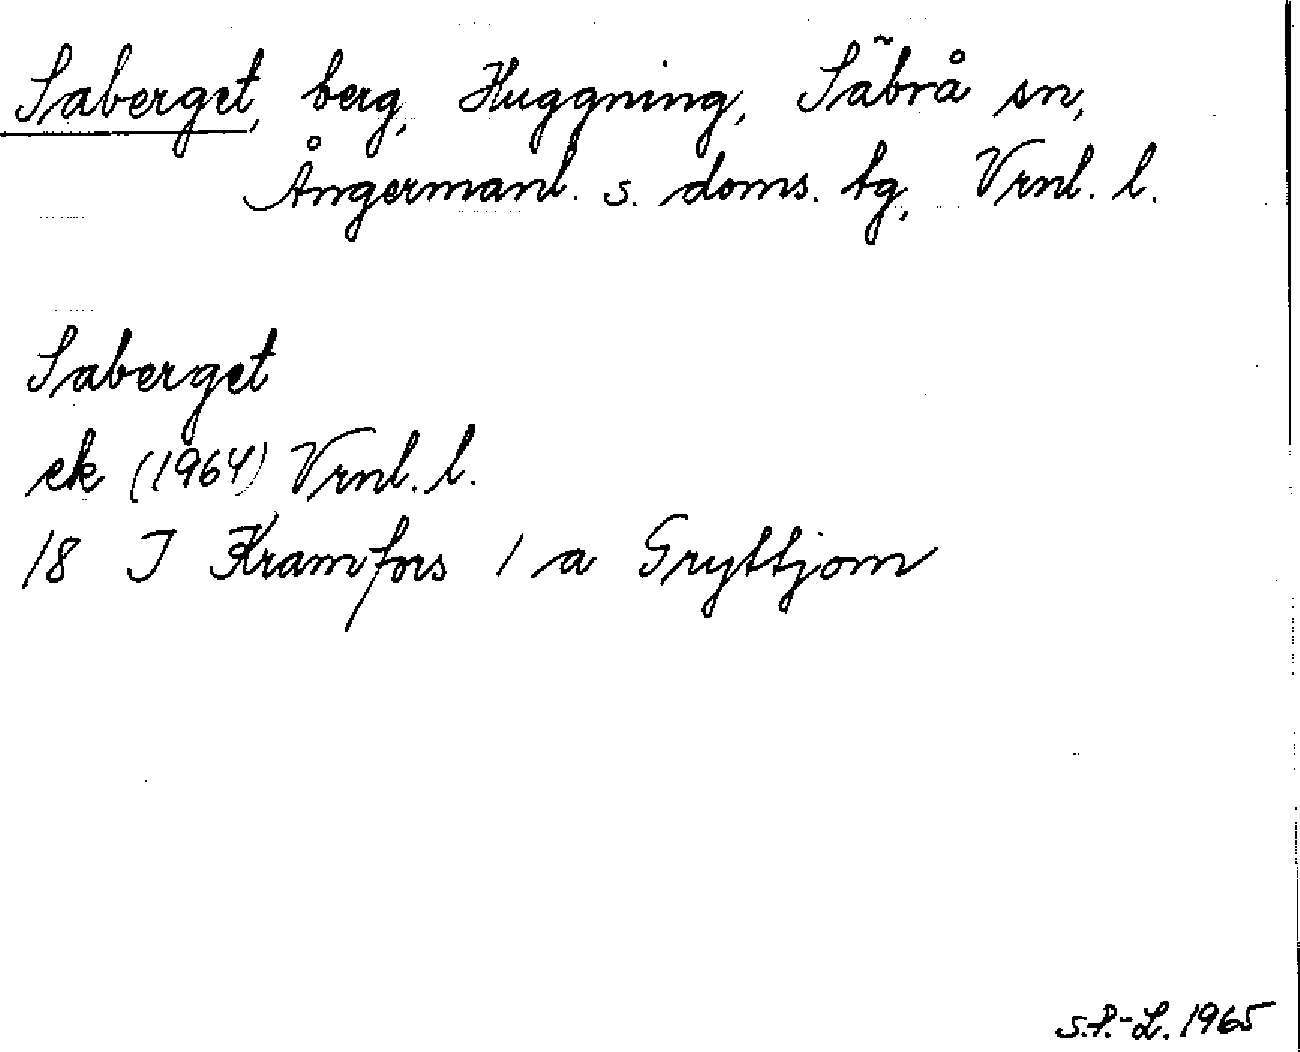 Saberget, berg, Huggning, Säbrå sn,
Ångermanl. s. doms. tg, Vrnl. l.
Saberget
ek (1964) Vrnl. l.
18 I Kramfors 1 a Gryttjom
S.P.-L. 1965